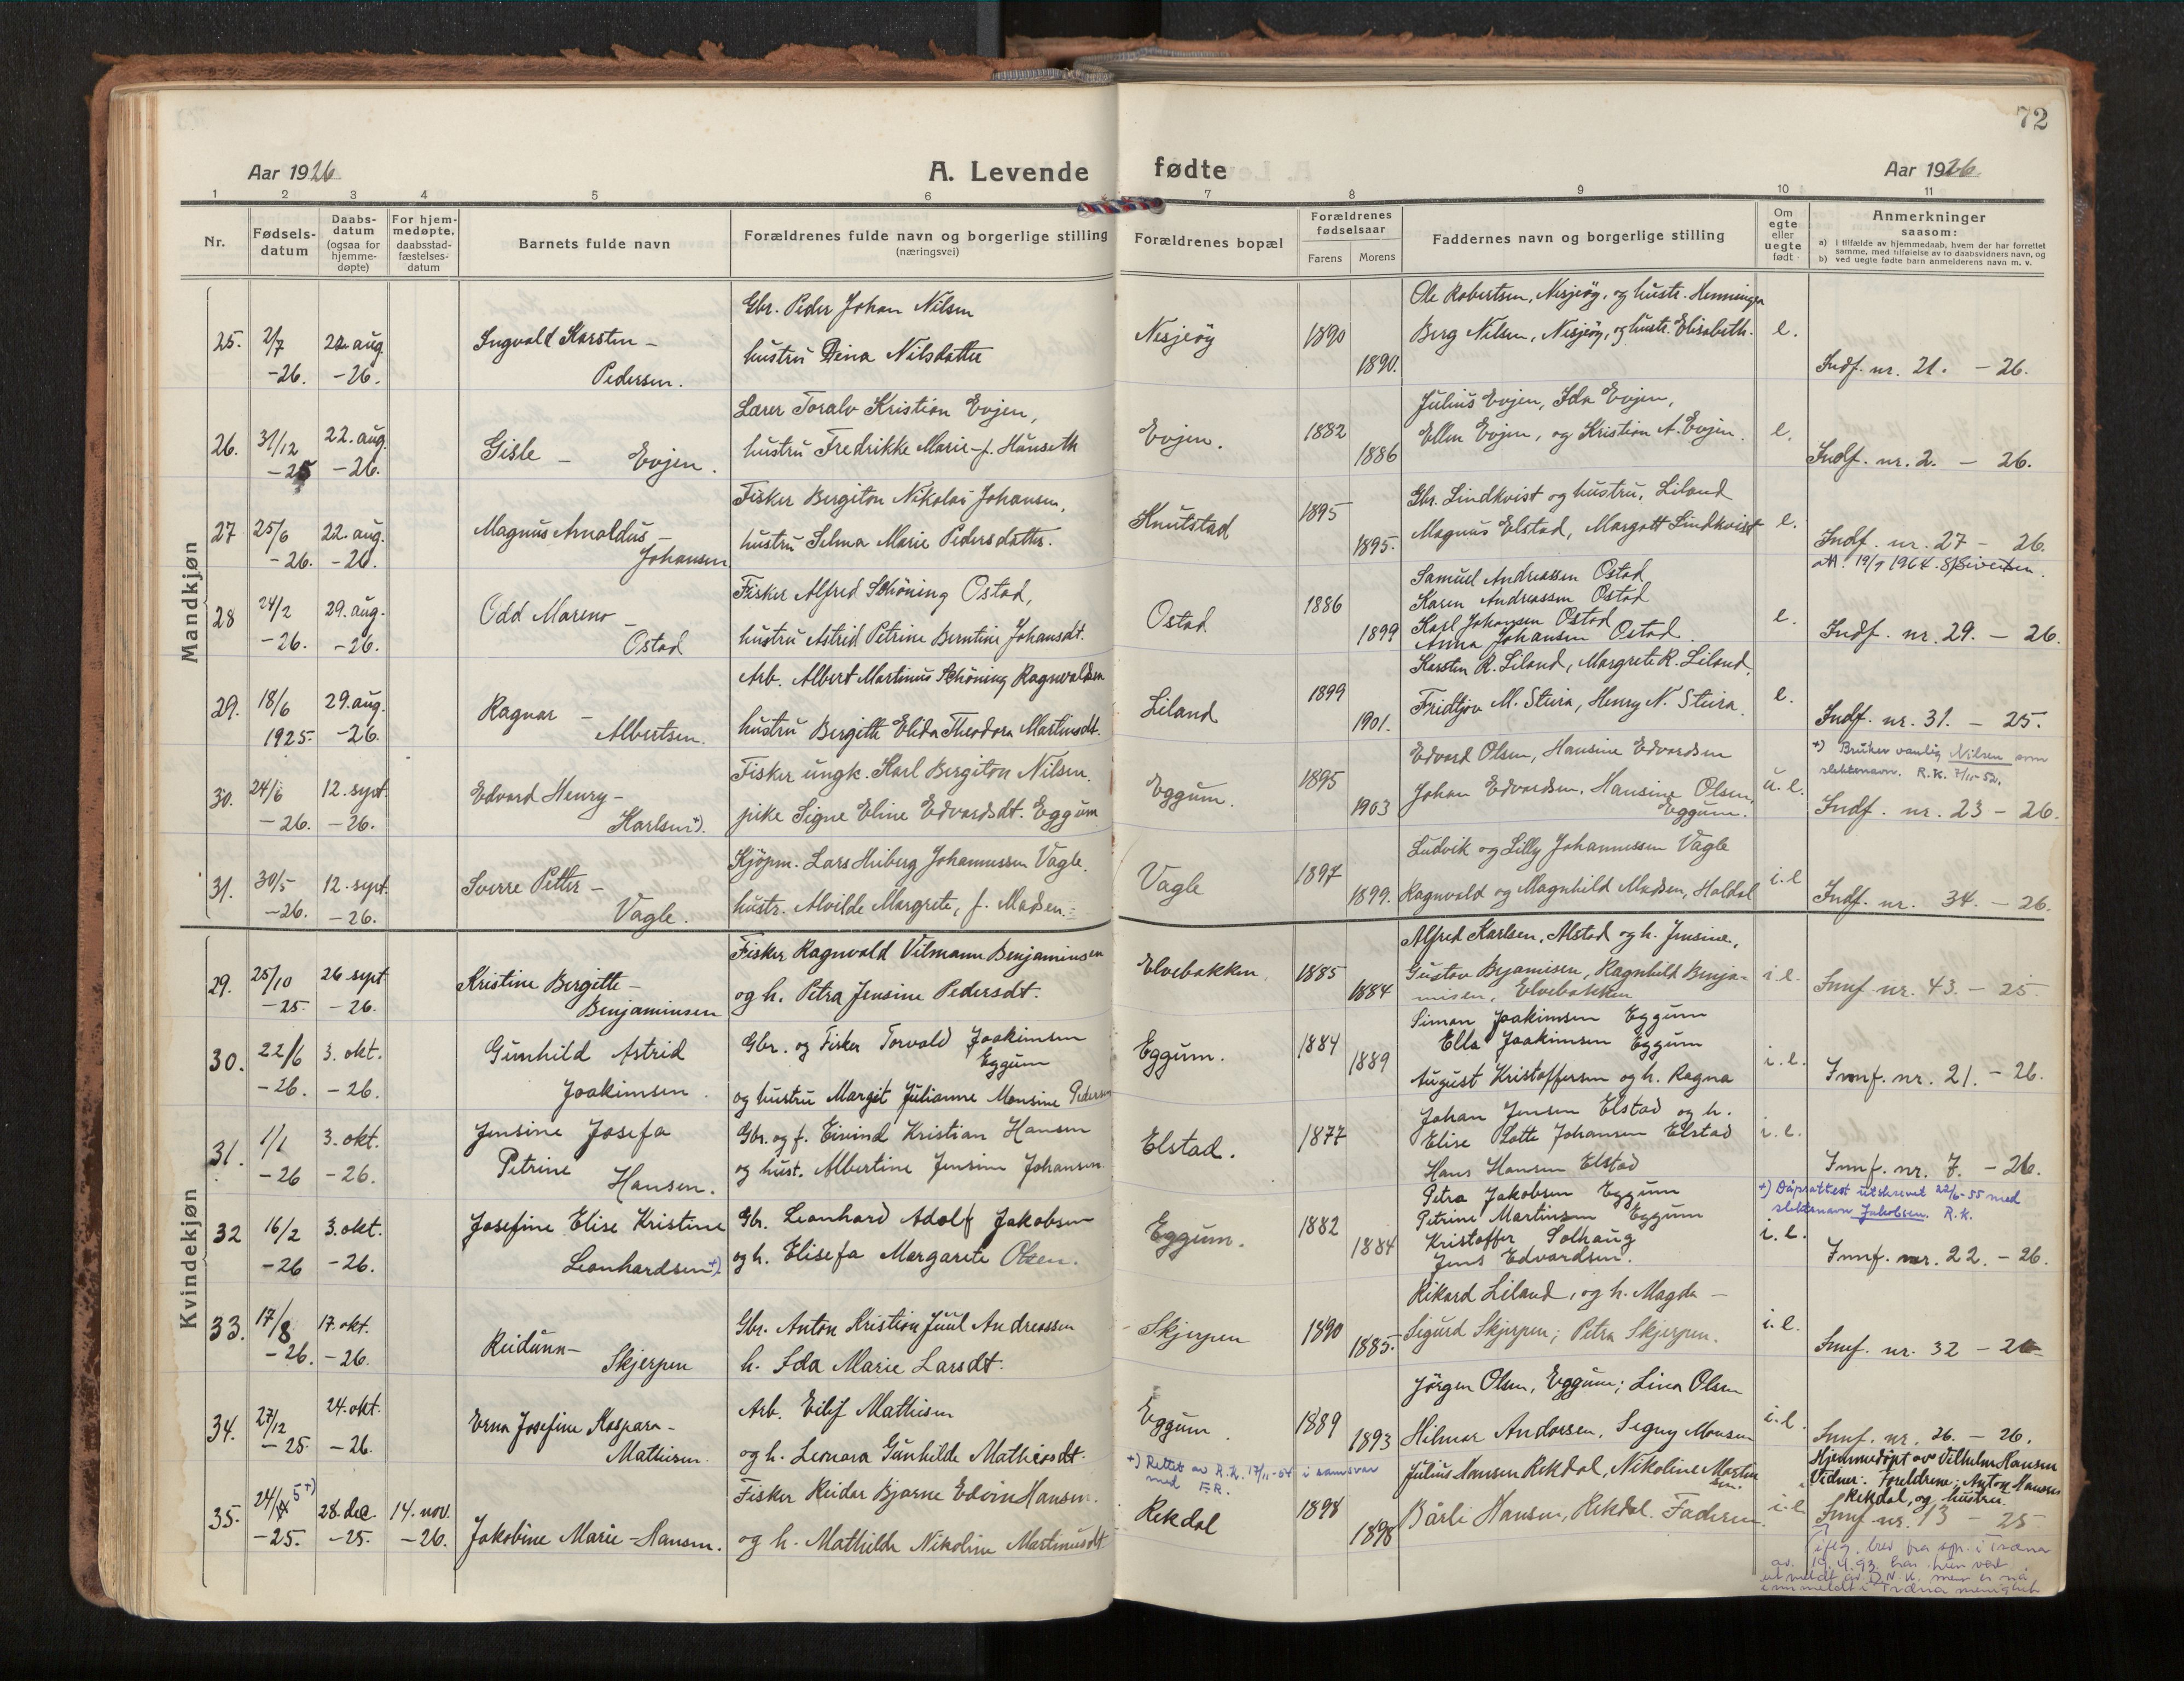 72
Aar 1926
A. Levende fødte
Aar 1926
1 2 3 4 5 6 7 8 9 10 11
Nr.
Fødsels-
datum
Daabs-
datum
(ogsaa for
hjemme-
døpte)
For hjem-
medøpte,
daabsstad-
fæstelses-
datum
Barnets fulde navn
Forældrenes fulde navn og borgerlige stilling
(næringsvei)
Forældrenes bopæl
Forældrenes
fødselsaar
Farens Morens
Faddernes navn og borgerlige stilling
Om
egte
eller
uegte
født
Anmerkninger
saasom:
a) i tilfælde av hjemmedaab, hvem der har forrettet
samme, med tilføielse av to daabsvidners navn, og
b) ved uegte fødte barn anmelderens navn m. v.
Mandkjøn
25. 2/7 -26. 22 aug. -26.
Ingvald Karsten -
Pedersen.
Gbr. Peder Johan Nilsen
hustru Dina Nilsdatter
Nesjeöy 1890 1890.
Ole Robertsen, Nesjeöy, og hustr. Henninga
Berg Nilsen, Nesjeöy, og hustr. Elisabeth.
e.
Indf. nr. 21. - 26.
26. 31/12 -25 22. aug. -26.
Gisle - Evjen.
Lærer Toralv Kristian Evjen,
hustru Fredrikke Marie f. Hanseth
Evjen. 1882 1886
Julius Evjen, Ida Evjen,
Ellen Evjen, og Kristian A. Evjen.
e.
Indf. nr. 2. - 26.
27 25/6 -26. 22. aug. -26.
Magnus Arnoldus -
Johansen
Fisker Bergiton Nikolai Johansen,
hustru Selma Marie Pedersdatter.
Knutstad 1895 1895.
Gbr. Lindkvist og hustru, Liland
Magnus Elstad, Margott Lindkvist
e.
Indf. nr. 27 - 26.
att. 19/9 1964.
28 24/2 -26. 29. aug. -26.
Odd Mareno -
Ostad
Fisker Alfred Schöning Ostad,
hustru Astrid Petrine Berntine Johansdt.
Ostad 1886 1899
Samuel Andreassen Ostad
Karen Andreassen Ostad
Karl Johansen Ostad
Anna Johansen Ostad.
e.
Indf. nr. 29. - 26.
29. 18/6 1925. 29. aug. -26.
Ragnar -
Albertsen.
Arb. Albert Martinus Schöning Ragnvaldsen
hustru Bergitte Elida Theodora Martinsdt.
Liland 1899 1901.
Karsten R. Liland, Margrete R. Liland,
Fridtjov M. Steira, Henry N. Steira.
e.
Indf. nr. 31. - 25.
30. 24/6 -26. 12. sept. -26.
Edvard Henry -
Karlsen +).
Fisker ungk. Karl Bergiton Nilsen.
pike Signe Eline Edvardsdt. Eggum
Eggum. 1895 1903
Edvard Olsen, Hansine Edvardsen
Johan Edvardsen, Hansine Olsen,
Eggum.
u. e.
+) Bruker vanlig Nilsen som
slektsnavn. R.K. 7/11-52.
Indf. nr. 23 - 26.
31. 30/5 -26. 12. sept. -26.
Sverre Petter -
Vagle.
Kjöpm. Lars Hiberg Johannessen Vagle.
hustr. Alvilde Margrete, f. Madsen.
Vagle 1897 1899.
Ludvik og Lilly Johannessen Vagle
Ragnvald og Magnhild Madsen, Haldal
i. e
Indf. nr. 34. - 26.
Kvindekjøn
29. 25/10 -25- 26 sept -26.
Kristine Bergitte -
Benjaminsen
Fisker Ragnvald Vilmann Benjaminsen
og h. Petra Jensine Pedersdt.
Elvebakken 1885 1884
Alfred Karlsen, Alstad og h. Jensine,
Gustav Benjamisen, Ragnhild Benja-
misen, Elvebakken
i. e.
Innf nr. 43. - 25.
30. 22/6 -26. 3. okt. -26.
Gunhild Astrid
Joakimsen.
Gbr. og Fisker Torvald Joakimsen
Eggum
og hustru Margit Julianne Monsine Pedersen
Eggum. 1884 1889
Simon Joakimsen Eggum
Ella Joakimsen Eggum
August Kristoffersen og h. Ragna
i. e.
Innf. nr. 21. - 26.
31. 1/1 -26 3. okt. -26.
Jensine Josefa
Petrine Hansen.
Gbr. og f. Eivind Kristian Hansen
og hust. Albertine Jensine Johansen
Elstad. 1877
Johan Jensen Elstad og h.
Elise Lotte Johansen Elstad
Hans Hansen Elstad
i. e.
Innf. nr. 7. - 26.
32 16/2 -26 3. okt. -26.
Josefine Elise Kristine
Leonhardsen +)
Gbr. Leonhard Adolf Jakobsen
og h. Elisefa Margarete Olsen.
Eggum. 1882 1884
Petra Jakobsen Eggum
Petrine Martinsen Eggum
Kristoffer Solhaug
Jens Edvardsen.
i. e.
+) Dåpsattest utskrevet 22/6-55 med
slektsnavn Jakobsen. R.K.
Innf. nr. 22. - 26.
33. 17/8 -26. 17. okt. -26.
Reidunn -
Skjerpen
Gbr. Anton Kristian Juul Andreassen
h. Ida Marie Larsdt.
Skjerpen 1890 1885.
Rikard Liland, og h. Magda -
Sigurd Skjerpen; Petra Skjerpen.
i. e.
Innf. nr. 32 - 26
34. 27/12 -25. 24. okt. -26.
Erna Josefine Kaspara -
Mathisen.
Arb. Eilif Mathisen
og h. Leonora Gunhilde Mathisdt.
Eggum. 1889 1893
Jörgen Olsen, Eggum; Lina Olsen
Hilmar Andorsen, Segny Monsen
i. e.
Innf. nr. 26. - 26.
+) Rettet av R.K. 17/11-54 i samsvar
med F.R.
35. 24/4 5+) -25. 28. dec. -25. 14. nov. -26.
Jakobine Marie - Hansen.
Fisker Reidar Bjarne Edvin Hansen.
og h. Mathilde Nikoline Martinusdt
Rekdal 1898 1898
Julius Hansen Rekdal, Nikoline Martin
sen.
Bårli Hansen, Rekdal. Faderen.
i. e
Hjemmedöpt av Vilhelm Hansen
Vidner: Foreldrene; Anton Hansen
Rekdal, og hustru.
Innf nr. 13 - 25
ifлg. brev fra spr. i Træna
av. 19.4.93 har hun vært
utmeldt av D.N.K. men er nå
innmeldt i Træna menighet